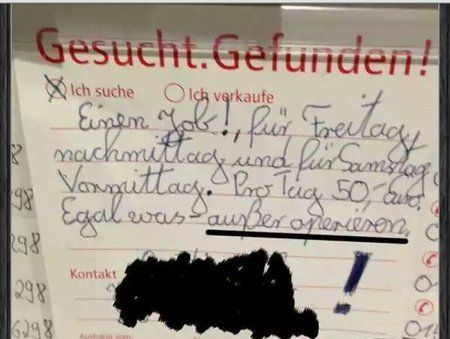 Gesucht.Gefunden!
Ich suche Ich verkaufe
Einen Job!, für Freitag,
nachmittag und für Samstag
Vormittag. Pro Tag 50,- euro.
Egal was - außer operieren.
!
Kontakt
298
298
298
6298